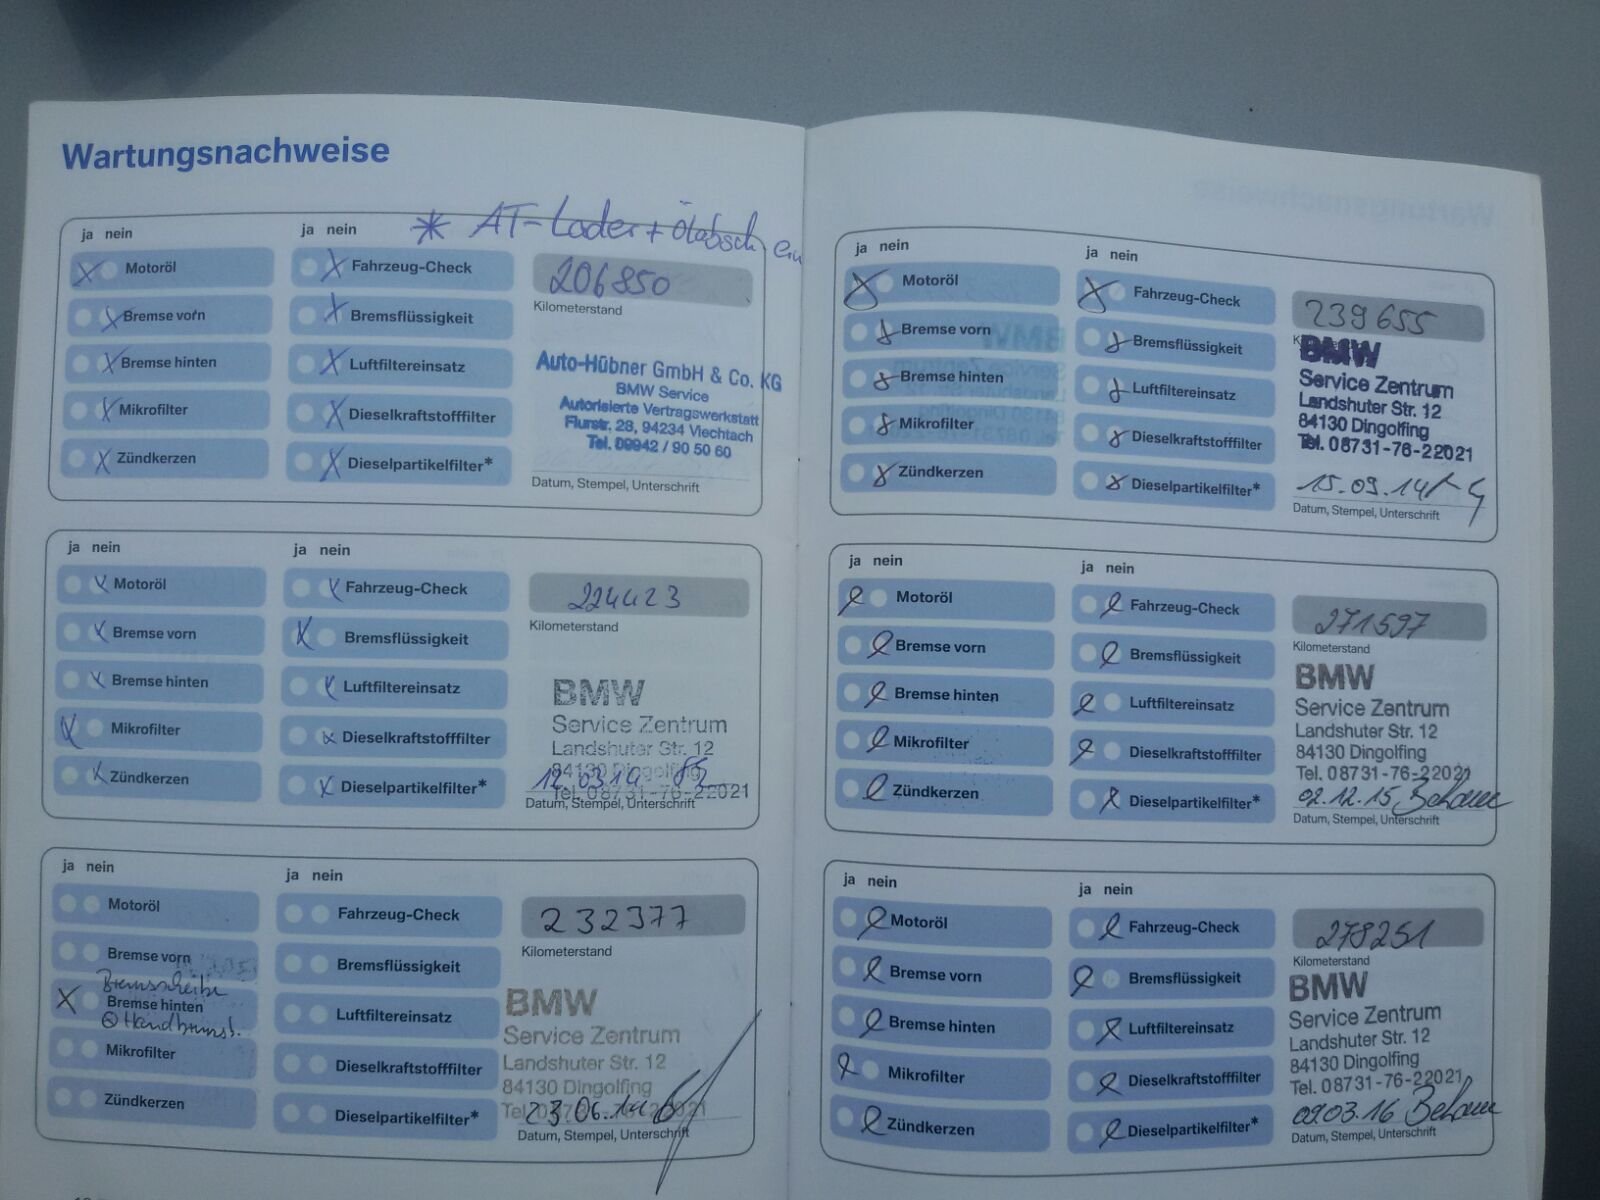 Wartungsnachweise
* AT-Lader + Ölabsch. ein
ja nein
ja nein
Motoröl
Fahrzeug-Check
206850
Kilometerstand
Bremse vorn
Bremsflüssigkeit
Bremse hinten
Luftfiltereinsatz
Mikrofilter
Dieselkraftstofffilter
Zündkerzen
Dieselpartikelfilter*
Auto-Hübner GmbH & Co. KG
BMW Service
Autorisierte Vertragswerkstatt
Flurstr. 28, 94234 Viechtach
Tel. 09942 / 90 50 60
Datum, Stempel, Unterschrift
ja nein
ja nein
Motoröl
Fahrzeug-Check
224423
Kilometerstand
Bremse vorn
Bremsflüssigkeit
Bremse hinten
Luftfiltereinsatz
Mikrofilter
Dieselkraftstofffilter
Zündkerzen
Dieselpartikelfilter*
BMW
Service Zentrum
Landshuter Str. 12
84130 Dingolfing
12.03.14
Tel. 08731-76-22021
Datum, Stempel, Unterschrift
ja nein
ja nein
Motoröl
Fahrzeug-Check
232377
Kilometerstand
Bremse vorn
Bremsscheibe
Bremsflüssigkeit
Bremse hinten
Luftfiltereinsatz
Mikrofilter
Dieselkraftstofffilter
Zündkerzen
Dieselpartikelfilter*
BMW
Service Zentrum
Landshuter Str. 12
84130 Dingolfing
Tel. 08731-76-22021
23.06.14
Datum, Stempel, Unterschrift
ja nein
ja nein
Motoröl
Fahrzeug-Check
239655
Bremse vorn
Bremsflüssigkeit
Bremse hinten
Luftfiltereinsatz
Mikrofilter
Dieselkraftstofffilter
Zündkerzen
Dieselpartikelfilter*
BMW
Service Zentrum
Landshuter Str. 12
84130 Dingolfing
Tel. 08731-76-22021
15.09.14
Datum, Stempel, Unterschrift
ja nein
ja nein
Motoröl
Fahrzeug-Check
271597
Kilometerstand
Bremse vorn
Bremsflüssigkeit
Bremse hinten
Luftfiltereinsatz
Mikrofilter
Dieselkraftstofffilter
Zündkerzen
Dieselpartikelfilter*
BMW
Service Zentrum
Landshuter Str. 12
84130 Dingolfing
Tel. 08731-76-22021
02.12.15
Datum, Stempel, Unterschrift
ja nein
ja nein
Motoröl
Fahrzeug-Check
278251
Kilometerstand
Bremse vorn
Bremsflüssigkeit
Bremse hinten
Luftfiltereinsatz
Mikrofilter
Dieselkraftstofffilter
Zündkerzen
Dieselpartikelfilter*
BMW
Service Zentrum
Landshuter Str. 12
84130 Dingolfing
Tel. 08731-76-22021
09.03.16
Datum, Stempel, Unterschrift